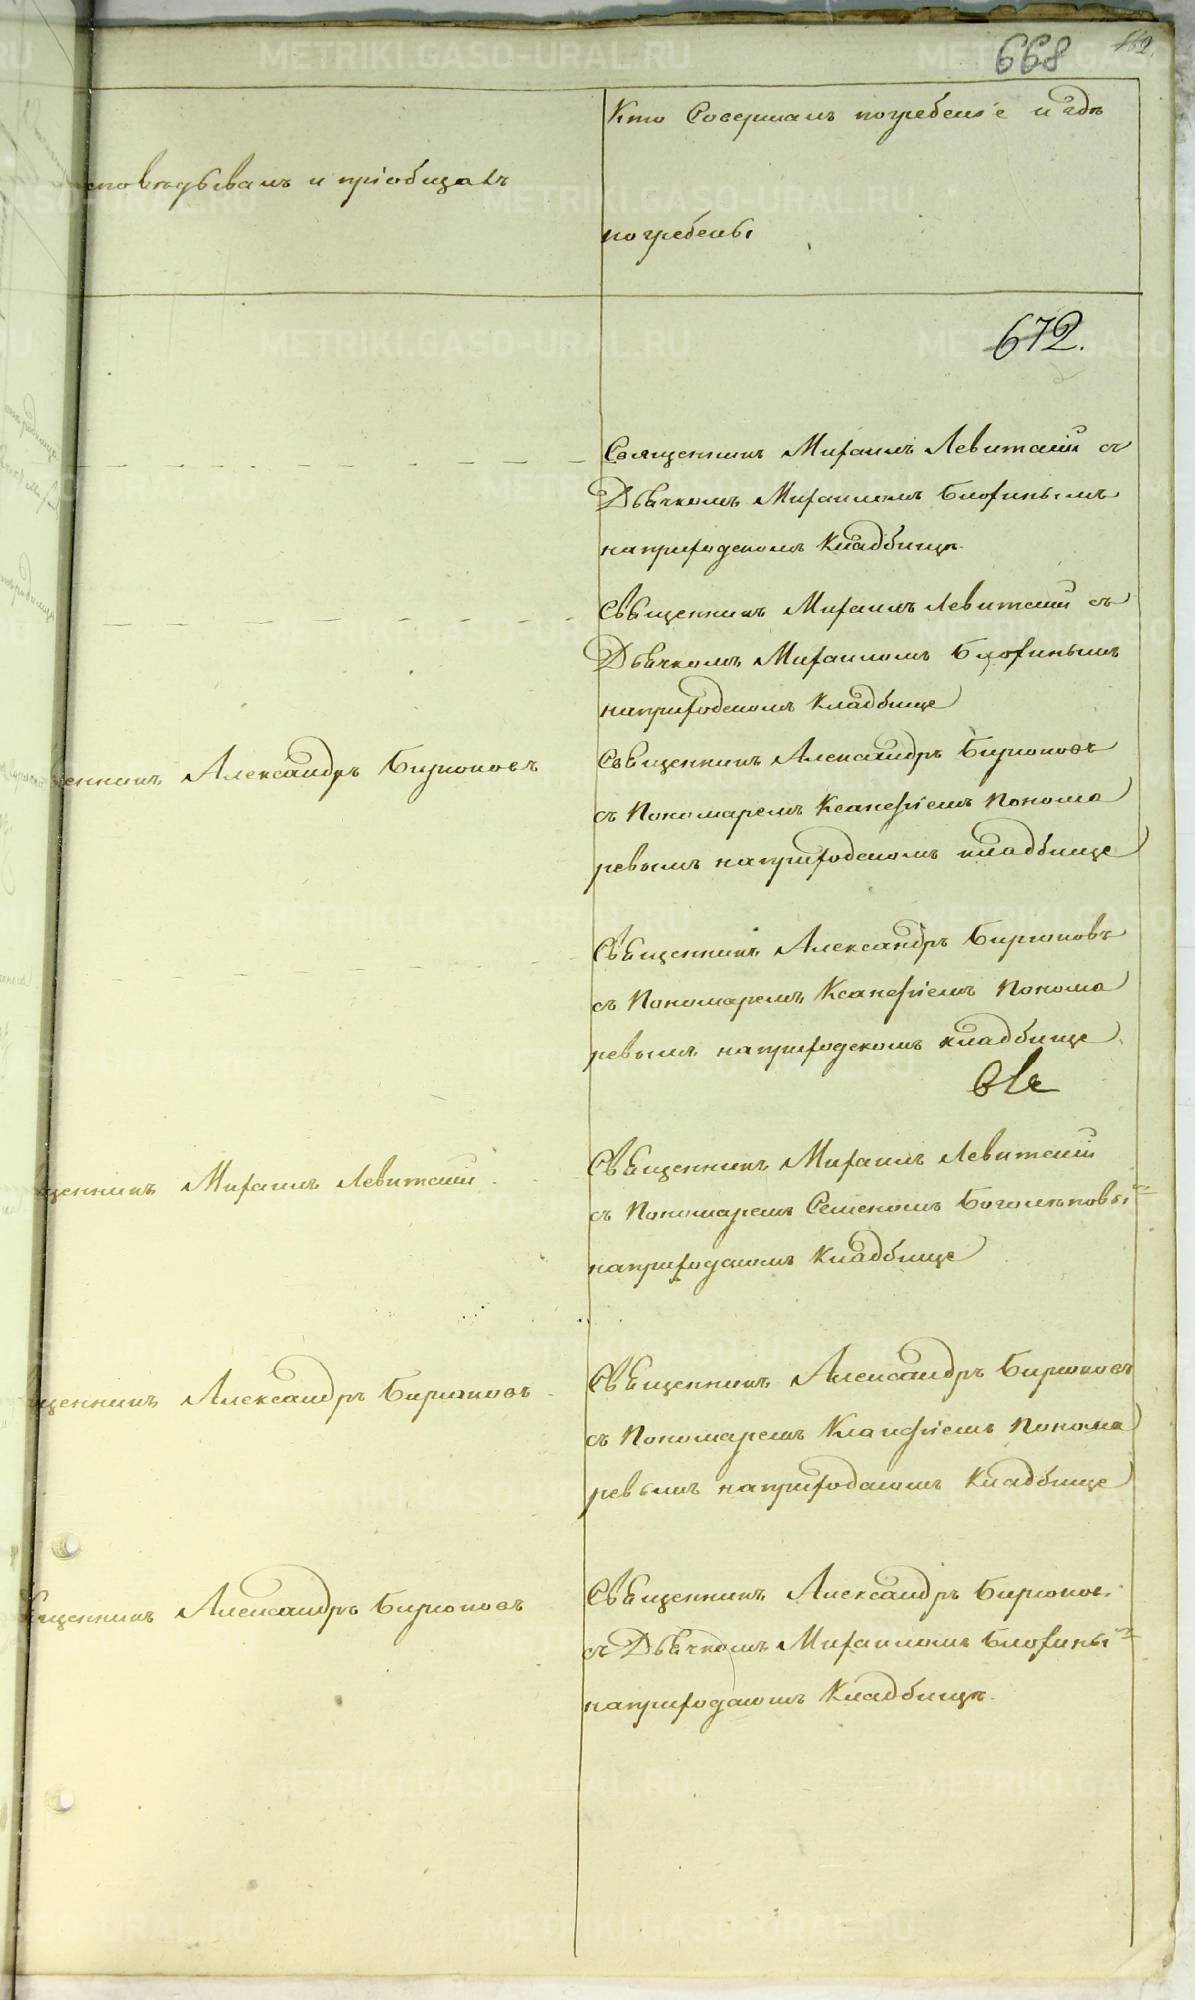 668
162.
Кто Совершалъ погребеніе и гдѣ
погребены
исповѣдывалъ и пріобщалъ
672.
Священникъ Михаилъ Левитскій съ
Дьячкомъ Михаиломъ Блохинымъ
наприходскомъ Кладбищѣ.
Священникъ Михаилъ Левитскій съ
Дьячкомъ Михаиломъ Блохинымъ
наприходскомъ Кладбище
щенникъ Александръ Бирюковъ
Священникъ Александръ Бирюковъ
съ Пономаремъ Ксанѳіемъ Понома
ревымъ наприходскомъ кладбище
Священникъ Александръ Бирюковъ
съ Пономаремъ Ксанѳіемъ Понома
ревымъ наприходскомъ кладбище.
щенникъ Михаилъ Левитскій.
Священникъ Михаилъ Левитскій
съ Пономаремъ Семеномъ Боголѣповы
наприходскомъ Кладбище
щенникъ Александръ Бирюковъ
Священникъ Александръ Бирюковъ
съ Пономаремъ Ксанѳіемъ Понома
ревымъ наприходскомъ Кладбище
щенникъ Александръ Бирюковъ
Священникъ Александръ Бирюков.
съ Дьячкомъ Михаиломъ Блохины
наприходскомъ Кладбищѣ.
METRIKI.GASO-URAL.RU